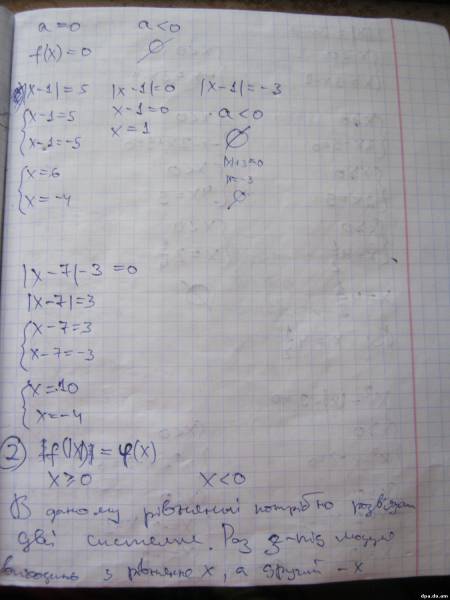 a = 0 a < 0
f(x) = 0 ∅
|x-1| = 5 |x-1| = 0 |x-1| = -3
{ x-1 = 5 x-1 = 0 a < 0
{ x-1 = -5 x = 1 ∅
{ x = 6
{ x = -4 ∅
|x-7|-3 = 0
|x-7| = 3
{ x-7 = 3
{ x-7 = -3
{ x = 10
{ x = -4
2 f(|x|) = φ(x)
x ≥ 0 x < 0
В даному рівнянні потрібно розв'язати
дві системи. Раз з-під модуля
виходить з рівняння x, а другий -x
dpa.do.am